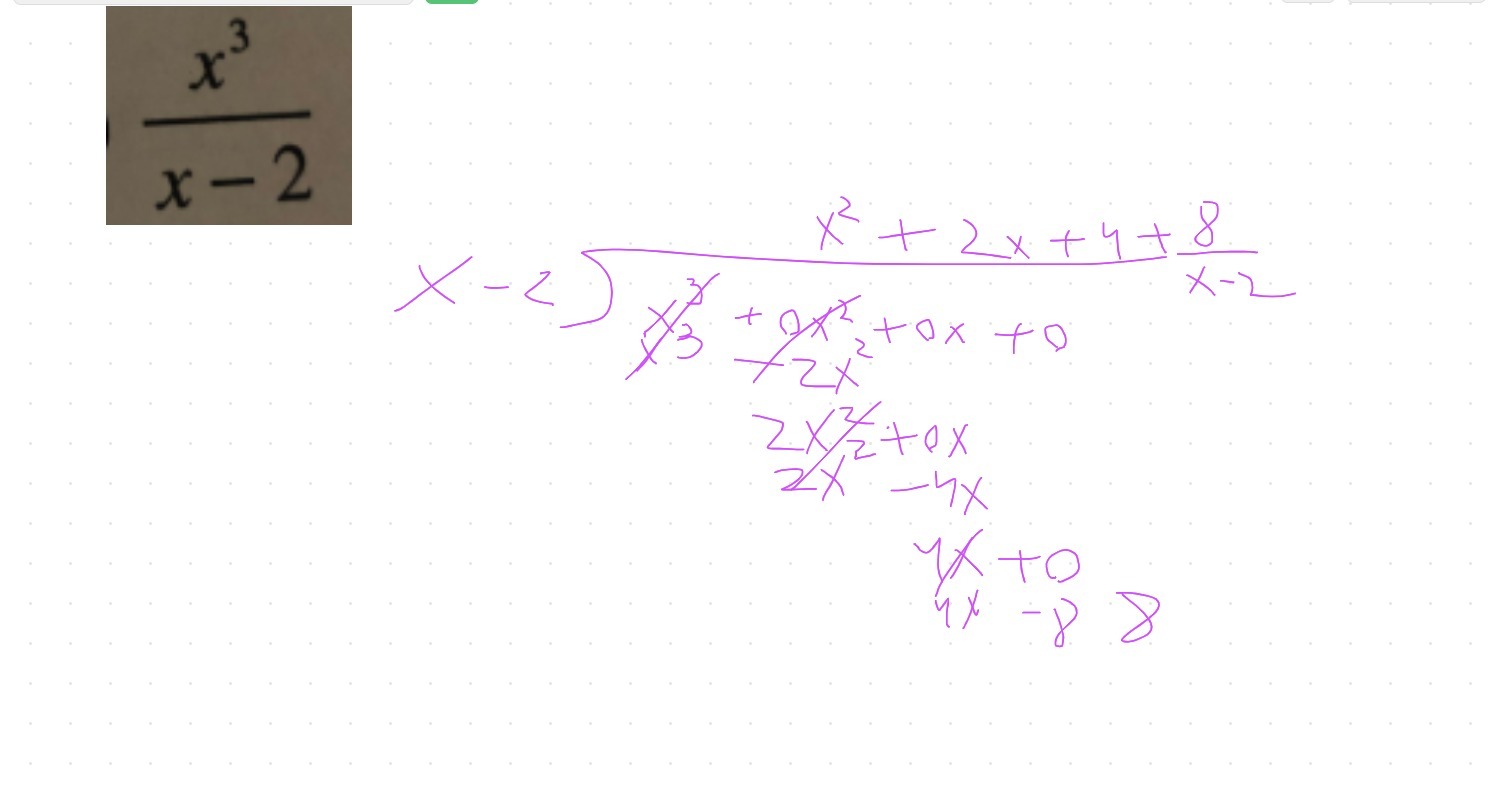 x³
x − 2
x² + 2x + 4 + 8
x − 2
x − 2 ) x³ + 0x² + 0x + 0
x³ − 2x²
2x² + 0x
2x² − 4x
4x + 0
4x − 8 8